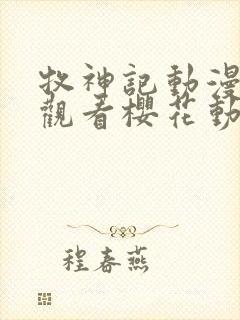 牧神記動漫
觀看櫻花動
程春燕